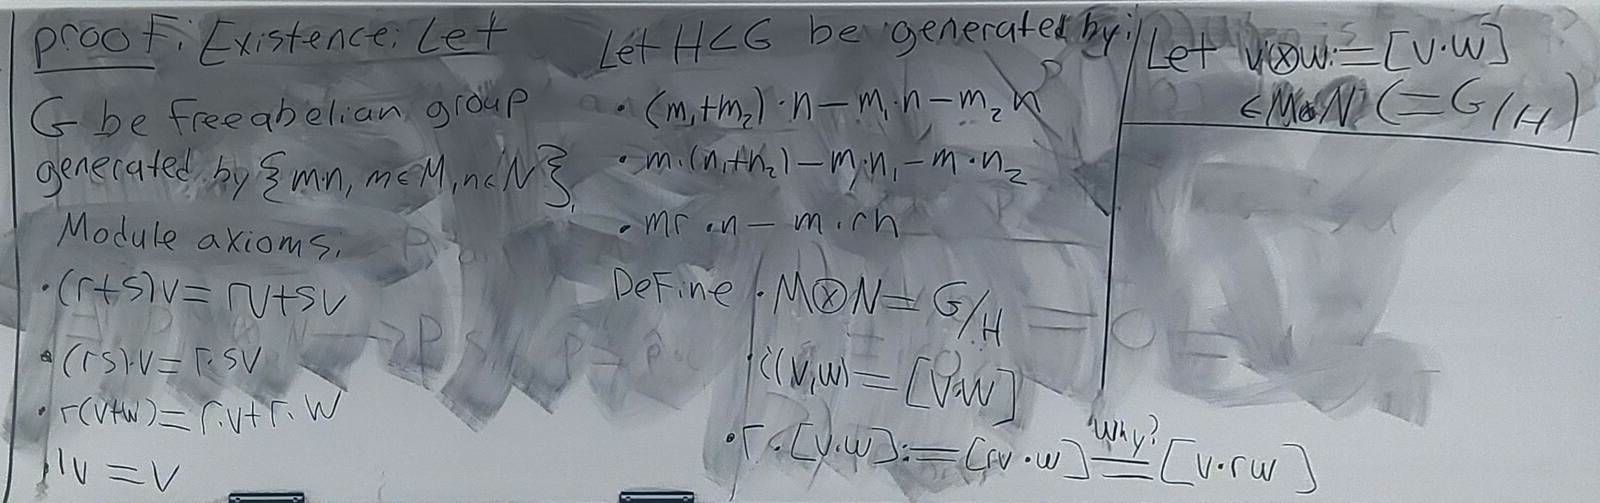 proof: Existence: Let
G be free abelian group
generated by {m·n, m∈M, n∈N}.
Module axioms:
• (r+s)v = rv+sv
• (rs)·v = r·sv
• r(v+w) = r·v+r·w
• 1v = v
Let H<G be generated by:
• (m₁+m₂)·n – m₁·n – m₂n
• m·(n₁+n₂) – m·n₁ – m·n₂
• mr·n – m·rn
Define • M⊗N = G/H
• i(v,w) = [v·w]
• r·[v·w] := [rv·w] = [v·rw]
why?
Let v⊗w := [v·w]
∈M⊗N (=G/H)